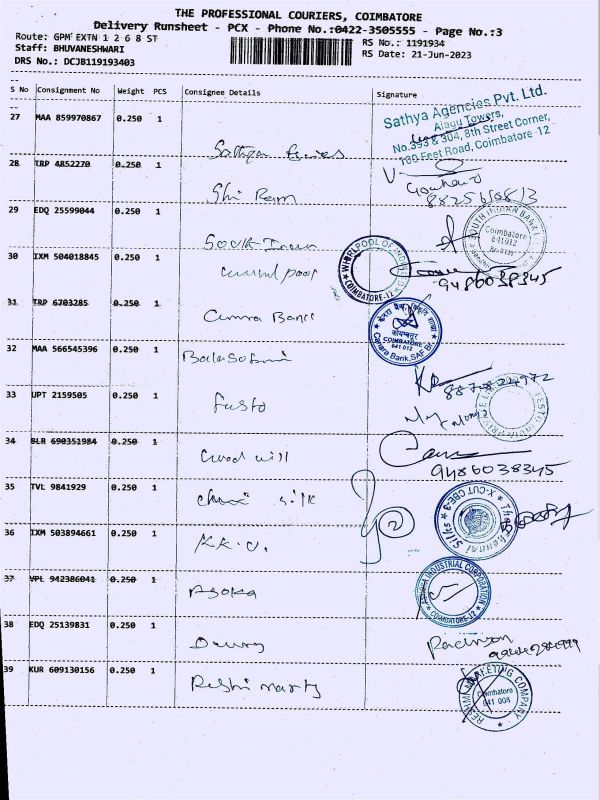 THE PROFESSIONAL COURIERS, COIMBATORE
Delivery Runsheet - PCX - Phone No.:0422-3505555 - Page No.:3
Route: GPM EXTN 1 2 6 8 ST
RS No.: 1191934
Staff: BHUVANESHWARI
RS Date: 21-Jun-2023
DRS No.: DCJB119193403
S No Consignment No Weight PCS Consignee Details Signature
27 MAA 859970867 0.250 1
Sathya Agencies Pvt. Ltd.
Alagu Towers,
No.393 & 304, 8th Street Corner,
100 Feet Road, Coimbatore -12
28 TRP 4852270 0.250 1 Shri Ram
29 EDQ 25599044 0.250 1 South Indian
SOUTH INDIAN BANK
Coimbatore
641012
30 IXM 504018845 0.250 1
WHIRLPOOL OF INDIA
COIMBATORE-12
9486038345
31 TRP 6703285 0.250 1 Canara Bank
कोयम्बत्तूर
COIMBATORE
641 012
Canara Bank, SAF Br
32 MAA 566545396 0.250 1
33 UPT 2159505 0.250 1
34 BLR 690351984 0.250 1 Good will
9486038345
35 TVL 9841929 0.250 1 silk
The Chennai Silks
X-CUT CBE-3
36 IXM 503894661 0.250 1 K.K.
37 VPL 942386041 0.250 1 Asoka
ASHOKA INDUSTRIAL CORPORATION
COIMBATORE-12
38 EDQ 25139831 0.250 1
39 KUR 609130156 0.250 1
RESHMI MARKETING COMPANY
Coimbatore
641 008